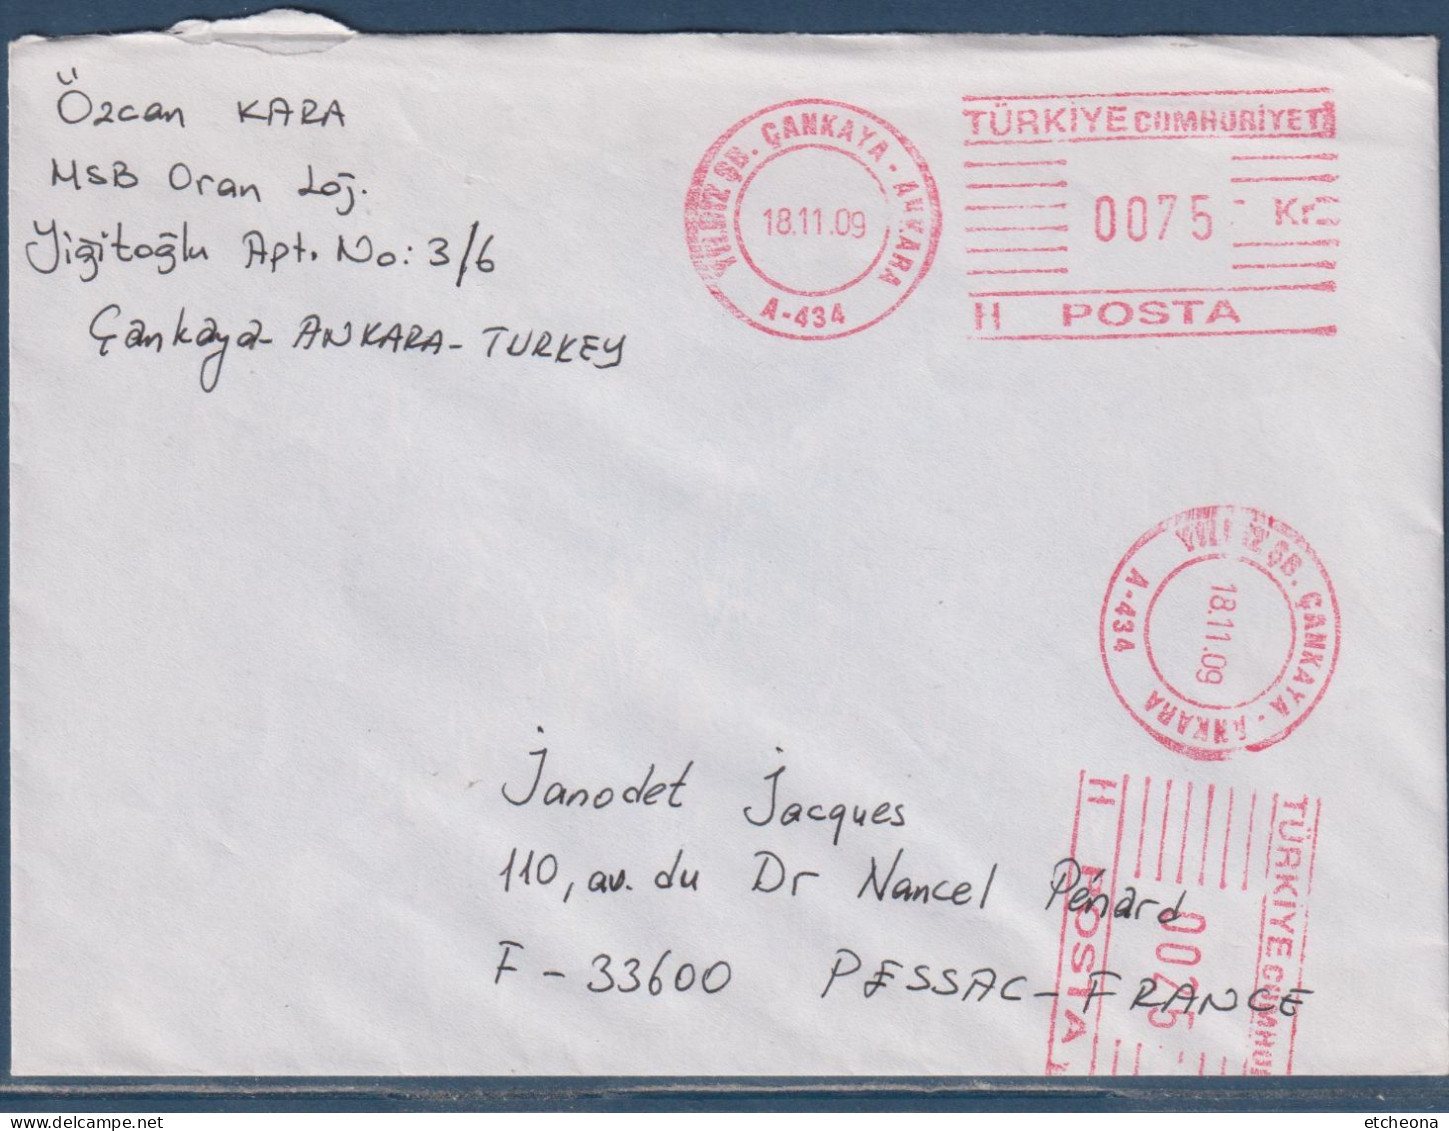 Özcan KARA
MSB Oran Loj.
Yiğitoğlu Apt. No: 3/6
Çankaya - ANKARA - TURKEY
YILDIZ ŞB. ÇANKAYA - ANKARA
18.11.09
A-434
TÜRKİYE CUMHURİYETİ
0075 Kr.
H POSTA
YILDIZ ŞB. ÇANKAYA - ANKARA
18.11.09
A-434
TÜRKİYE CUMHU
H POSTA
Janodet Jacques
110, av. du Dr Nancel Pénard
F - 33600 PESSAC - FRANCE
etcheona